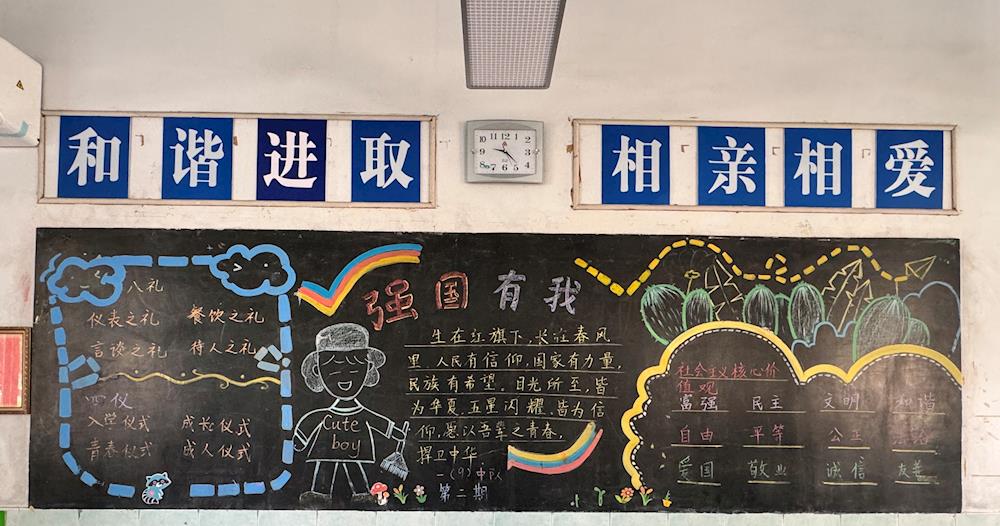 和谐进取
相亲相爱
八礼
仪表之礼 餐饮之礼
言谈之礼 待人之礼
四仪
入学仪式 成长仪式
青春仪式 成人仪式
强国有我
Cute
boy
生在红旗下，长在春风
里 人民有信仰，国家有力量，
民族有希望。目光所至，皆
为华夏，五星闪耀，皆为信
仰，愿以吾辈之青春，
捍卫中华
一(9)中队
第二期
社会主义核心价
值观
富强 民主 文明 和谐
自由 平等 公正
爱国 敬业 诚信 友善